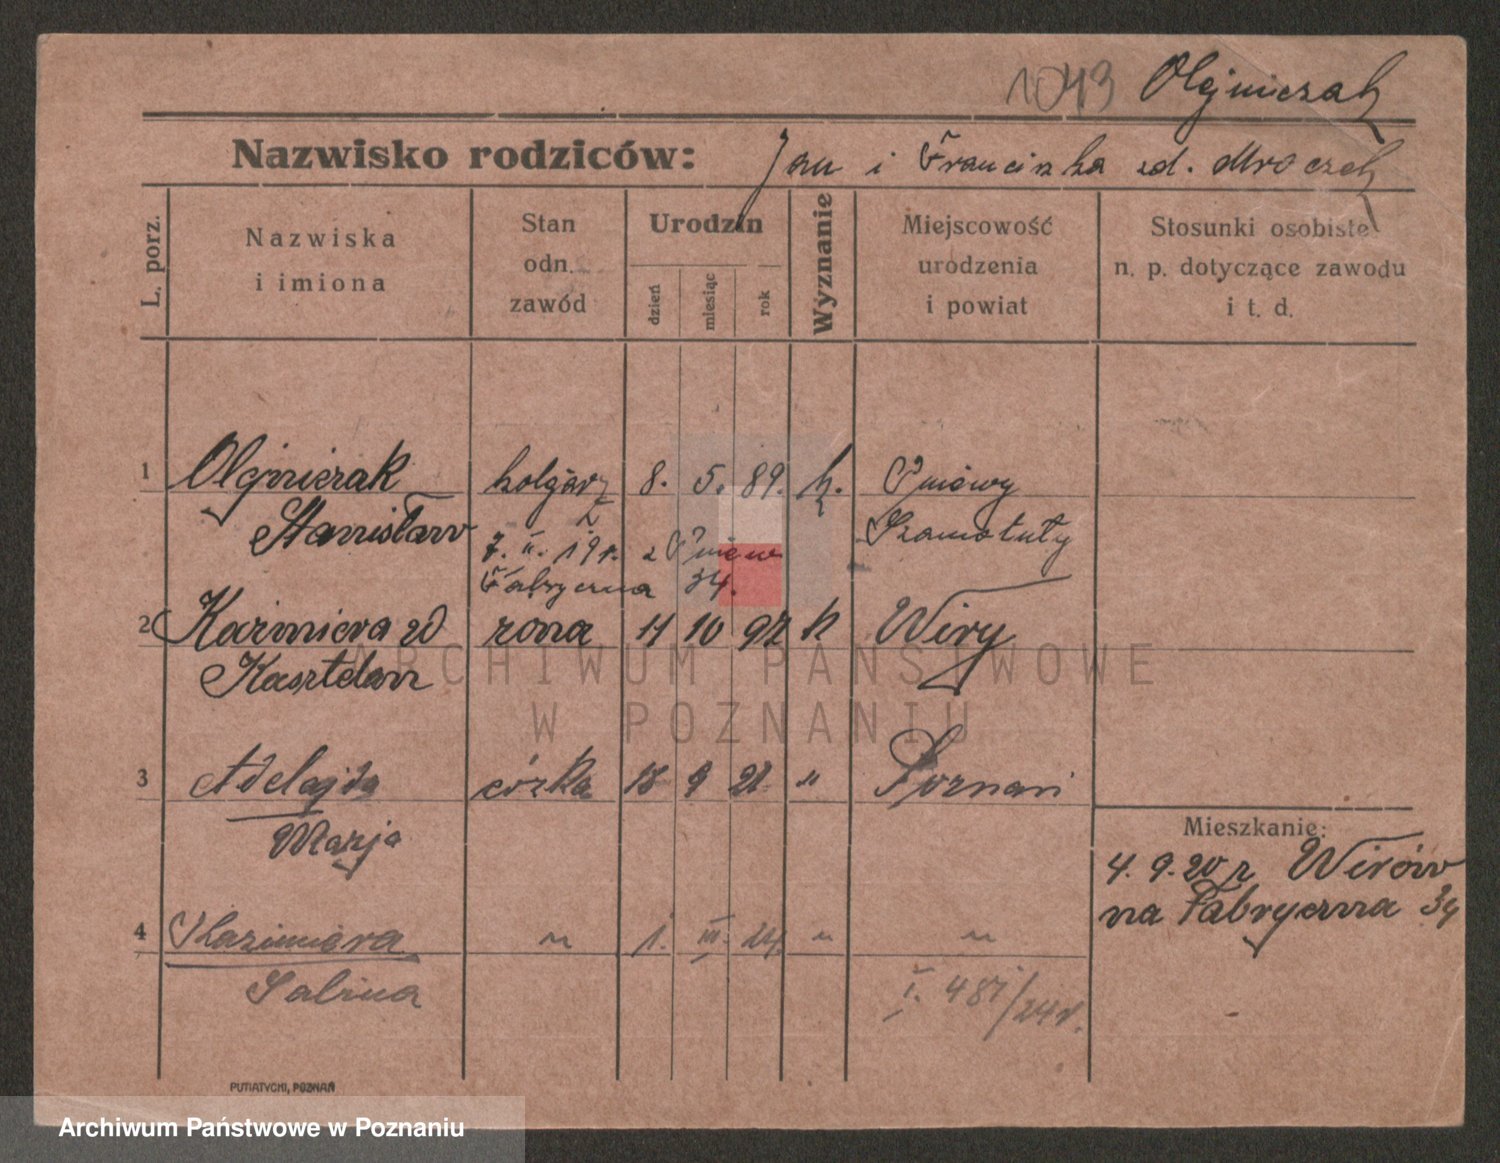 1043 Olejniczak
Nazwisko rodziców: Jan i Franciszka zd. Mroczek
L. porz.
Nazwiska
i imiona
Stan
odn.
zawód
Urodzin
dzień
miesiąc
rok
Wyznanie
Miejscowość
urodzenia
i powiat
Stosunki osobiste
n. p. dotyczące zawodu
i t. d.
1 Olejniczak 8. 5. 89. k. Pniewy
Stanisław Szamotuły
7. II. 19 r. z Pniew
Fabryczna 34.
2 Kazmiera zd żona 11 10 97 k Wiry
Kasztelan
ARCHIWUM PAŃSTWOWE
W POZNANIU
3 Adelajda córka 18 9 21 " Poznań
Marja
Mieszkanie:
4. 9. 20 r Wirów
na Fabryczna 34
4 Kazimiera ~ 1. III. 24. ~ ~
Salina
I. 481/24 r.
PUTIATYCKI, POZNAŃ
Archiwum Państwowe w Poznaniu